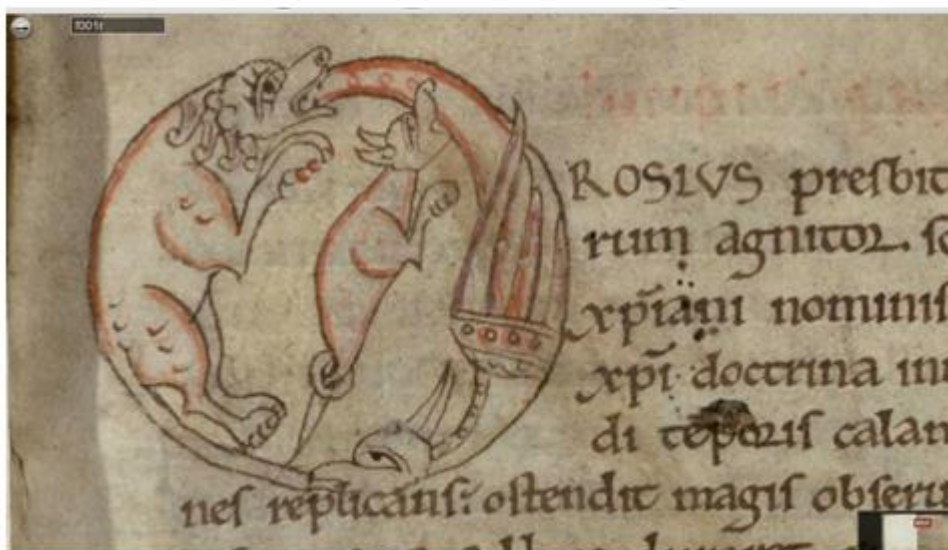 f001r
ROSIVS presbit
rum agnitor. sc
xp̄iani nominis
xp̄i doctrina in
di tēporis calan
nes replicans: ostendit magis obseru